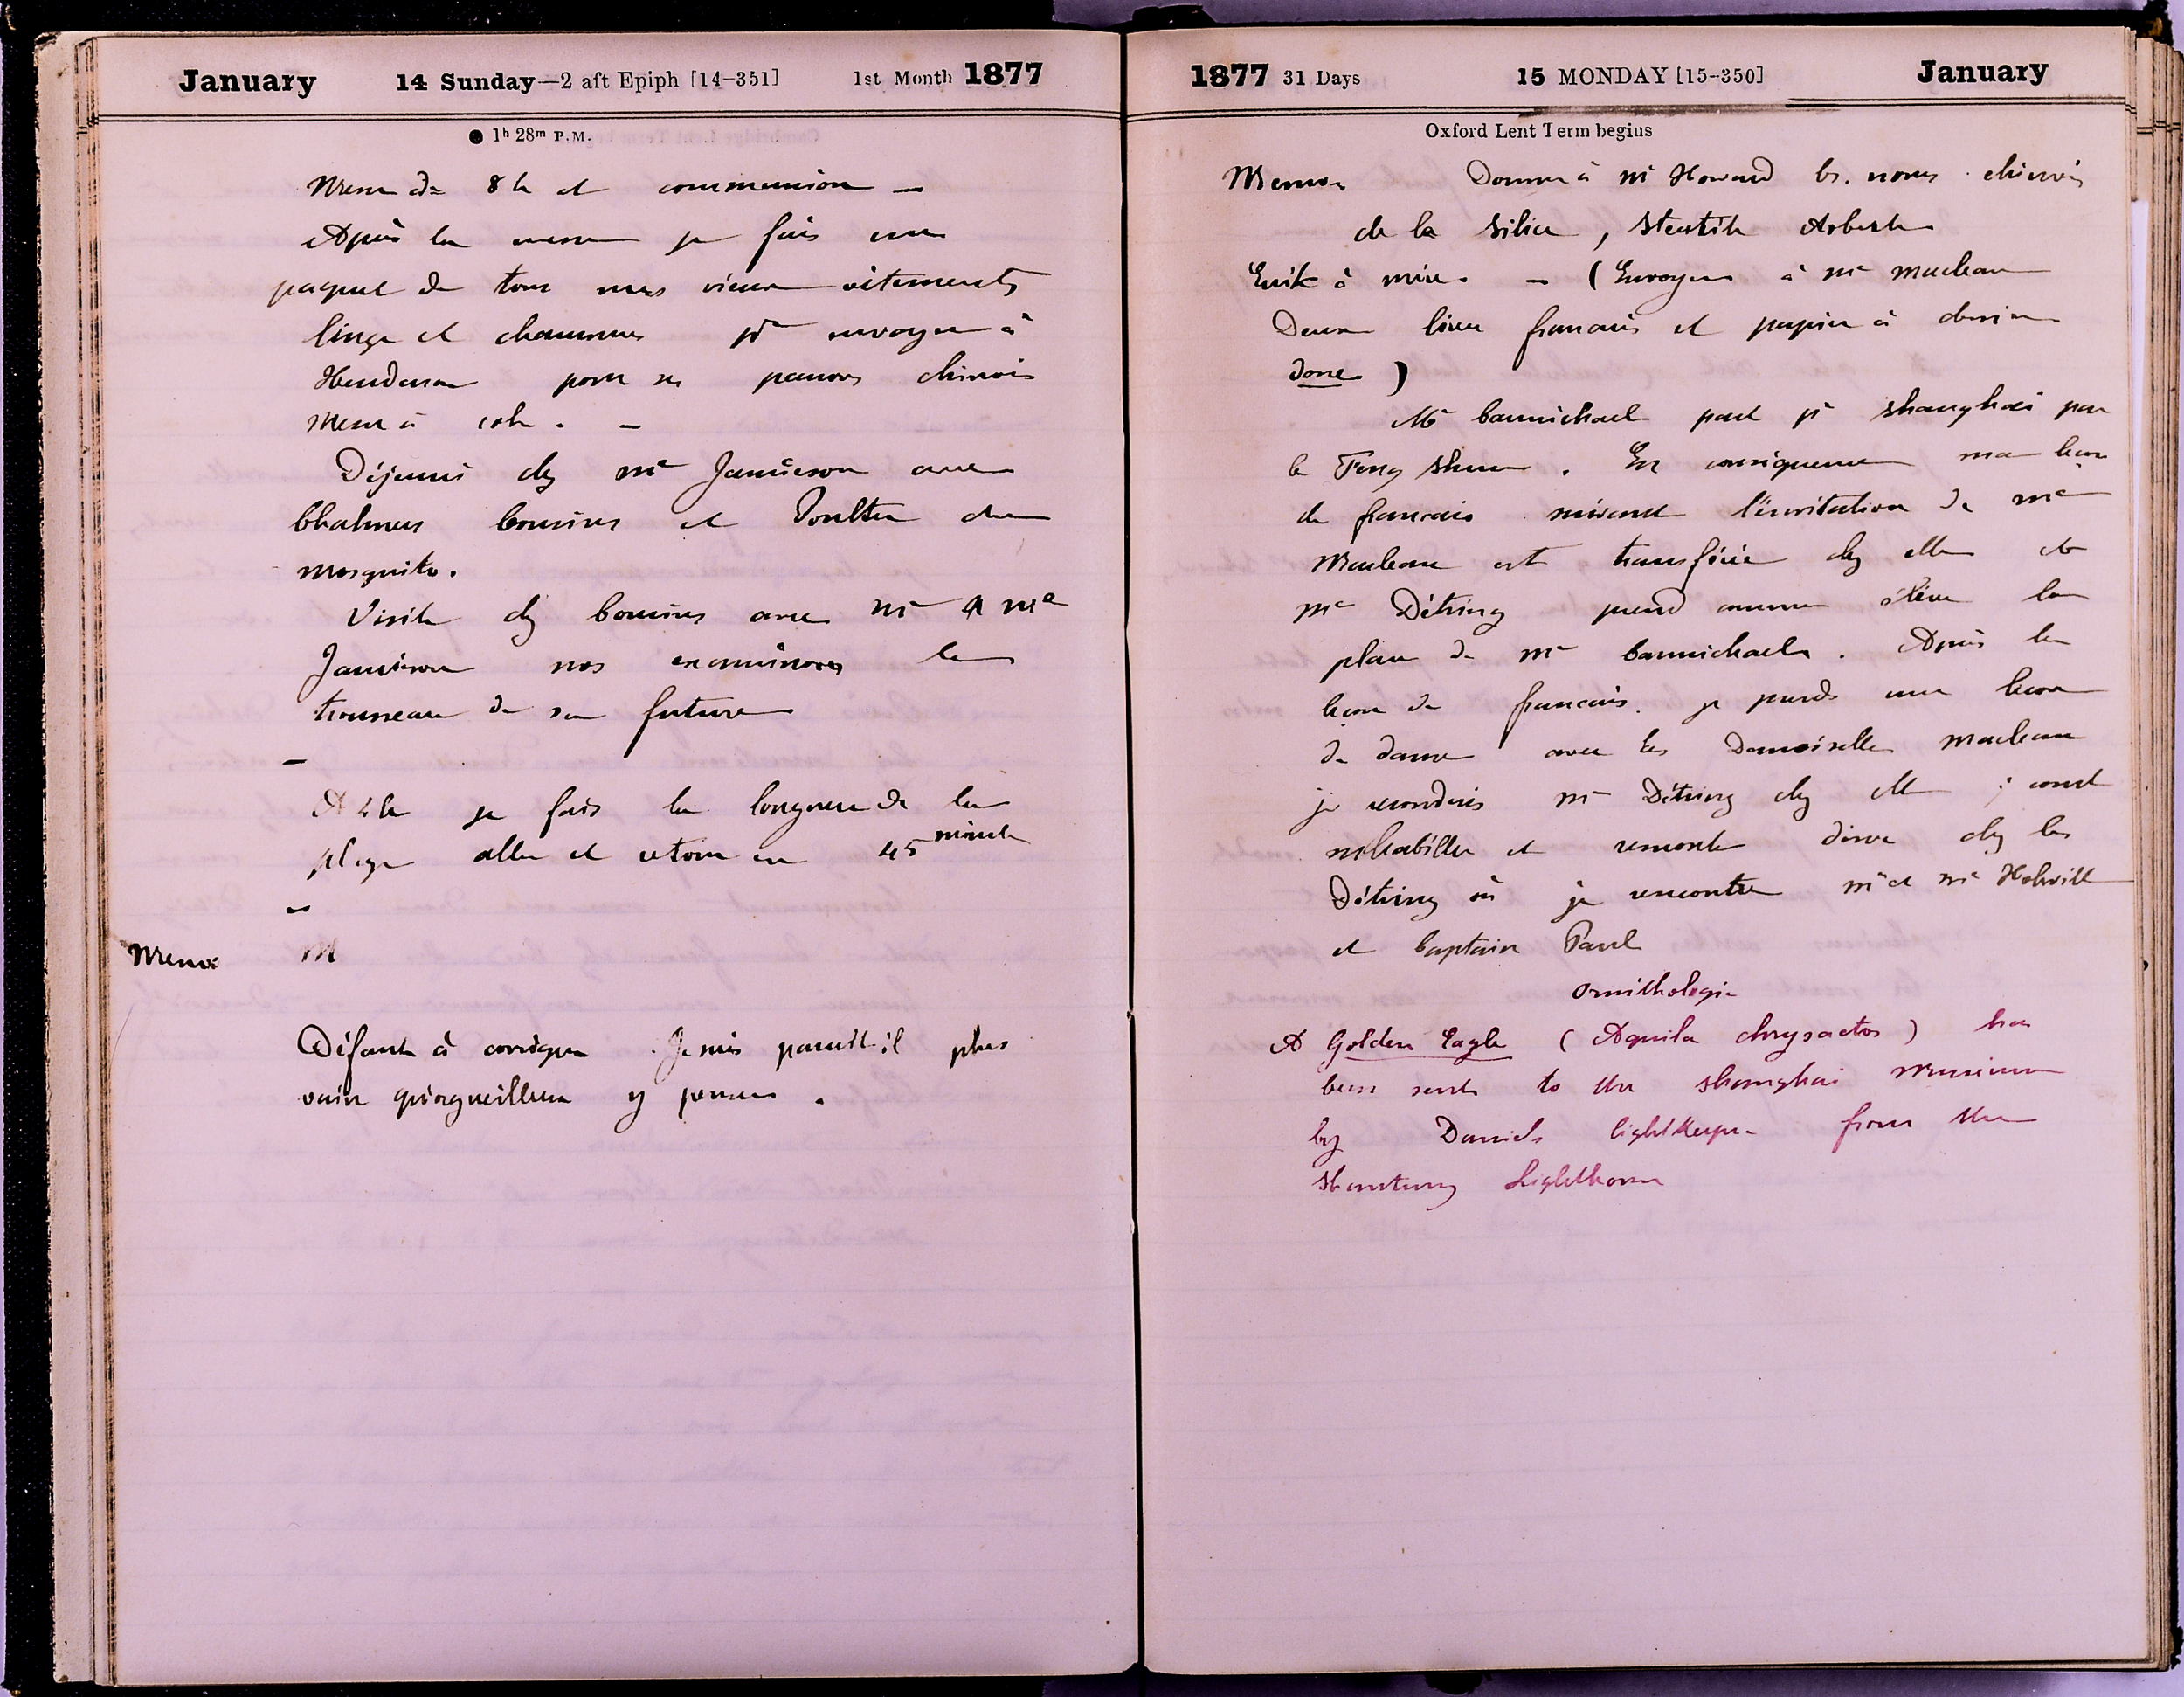 January 14 Sunday—2 aft Epiph [14-351] 1st Month 1877
● 1h 28m P.M.
Messe de 8 h et communion —
Après la messe je fais un
paquet de tous mes vieux vêtements
linge et chaussures pr envoyer à
Henderson pour ses pauvres chinois
Messe à
Déjeuné chez Mr Jamieson avec
Chalmers Cousins et Poulter du
Mosquito.
Visite chez Cousins avec Mr & Me
Jamieson nos examinons le
trousseau de sa future
—
A 4 h je fais la longueur de la
plage aller et retour en 45 minute
—
Memo M
Défaut à corriger. Je suis parait-il plus
vain qu'orgueilleux y penser.
1877 31 Days 15 MONDAY [15-350] January
Oxford Lent Term begins
Memo Donner à Mr Howard les noms chinois
de la Silice, Steatite Asbeste
Ecrit à mère. — (Envoyer à Me Maclean
Deux livre francais et papier à dessin
done)
Me Carmichael part pr Shanghai par
le Fung Shun. En consequence ma leçon
de francais suivant l'invitation de Me
Maclean est transférée chez elle et
Me Détring prend comme élève la
place de Me Carmichael. Après la
leçon de francais je prends une leçon
de danse avec les Demoiselles Maclean
je reconduis Me Détring chez elle; cours
m'habiller et remonte diner chez les
Détring où je rencontre Mr et Me Holwill
et Captain Paul
Ornithologie
A Golden Eagle (Aquila chrysaetos) has
been sent to the Shanghai Museum
by Daniels lightkeeper from the
Shantung Lighthouse